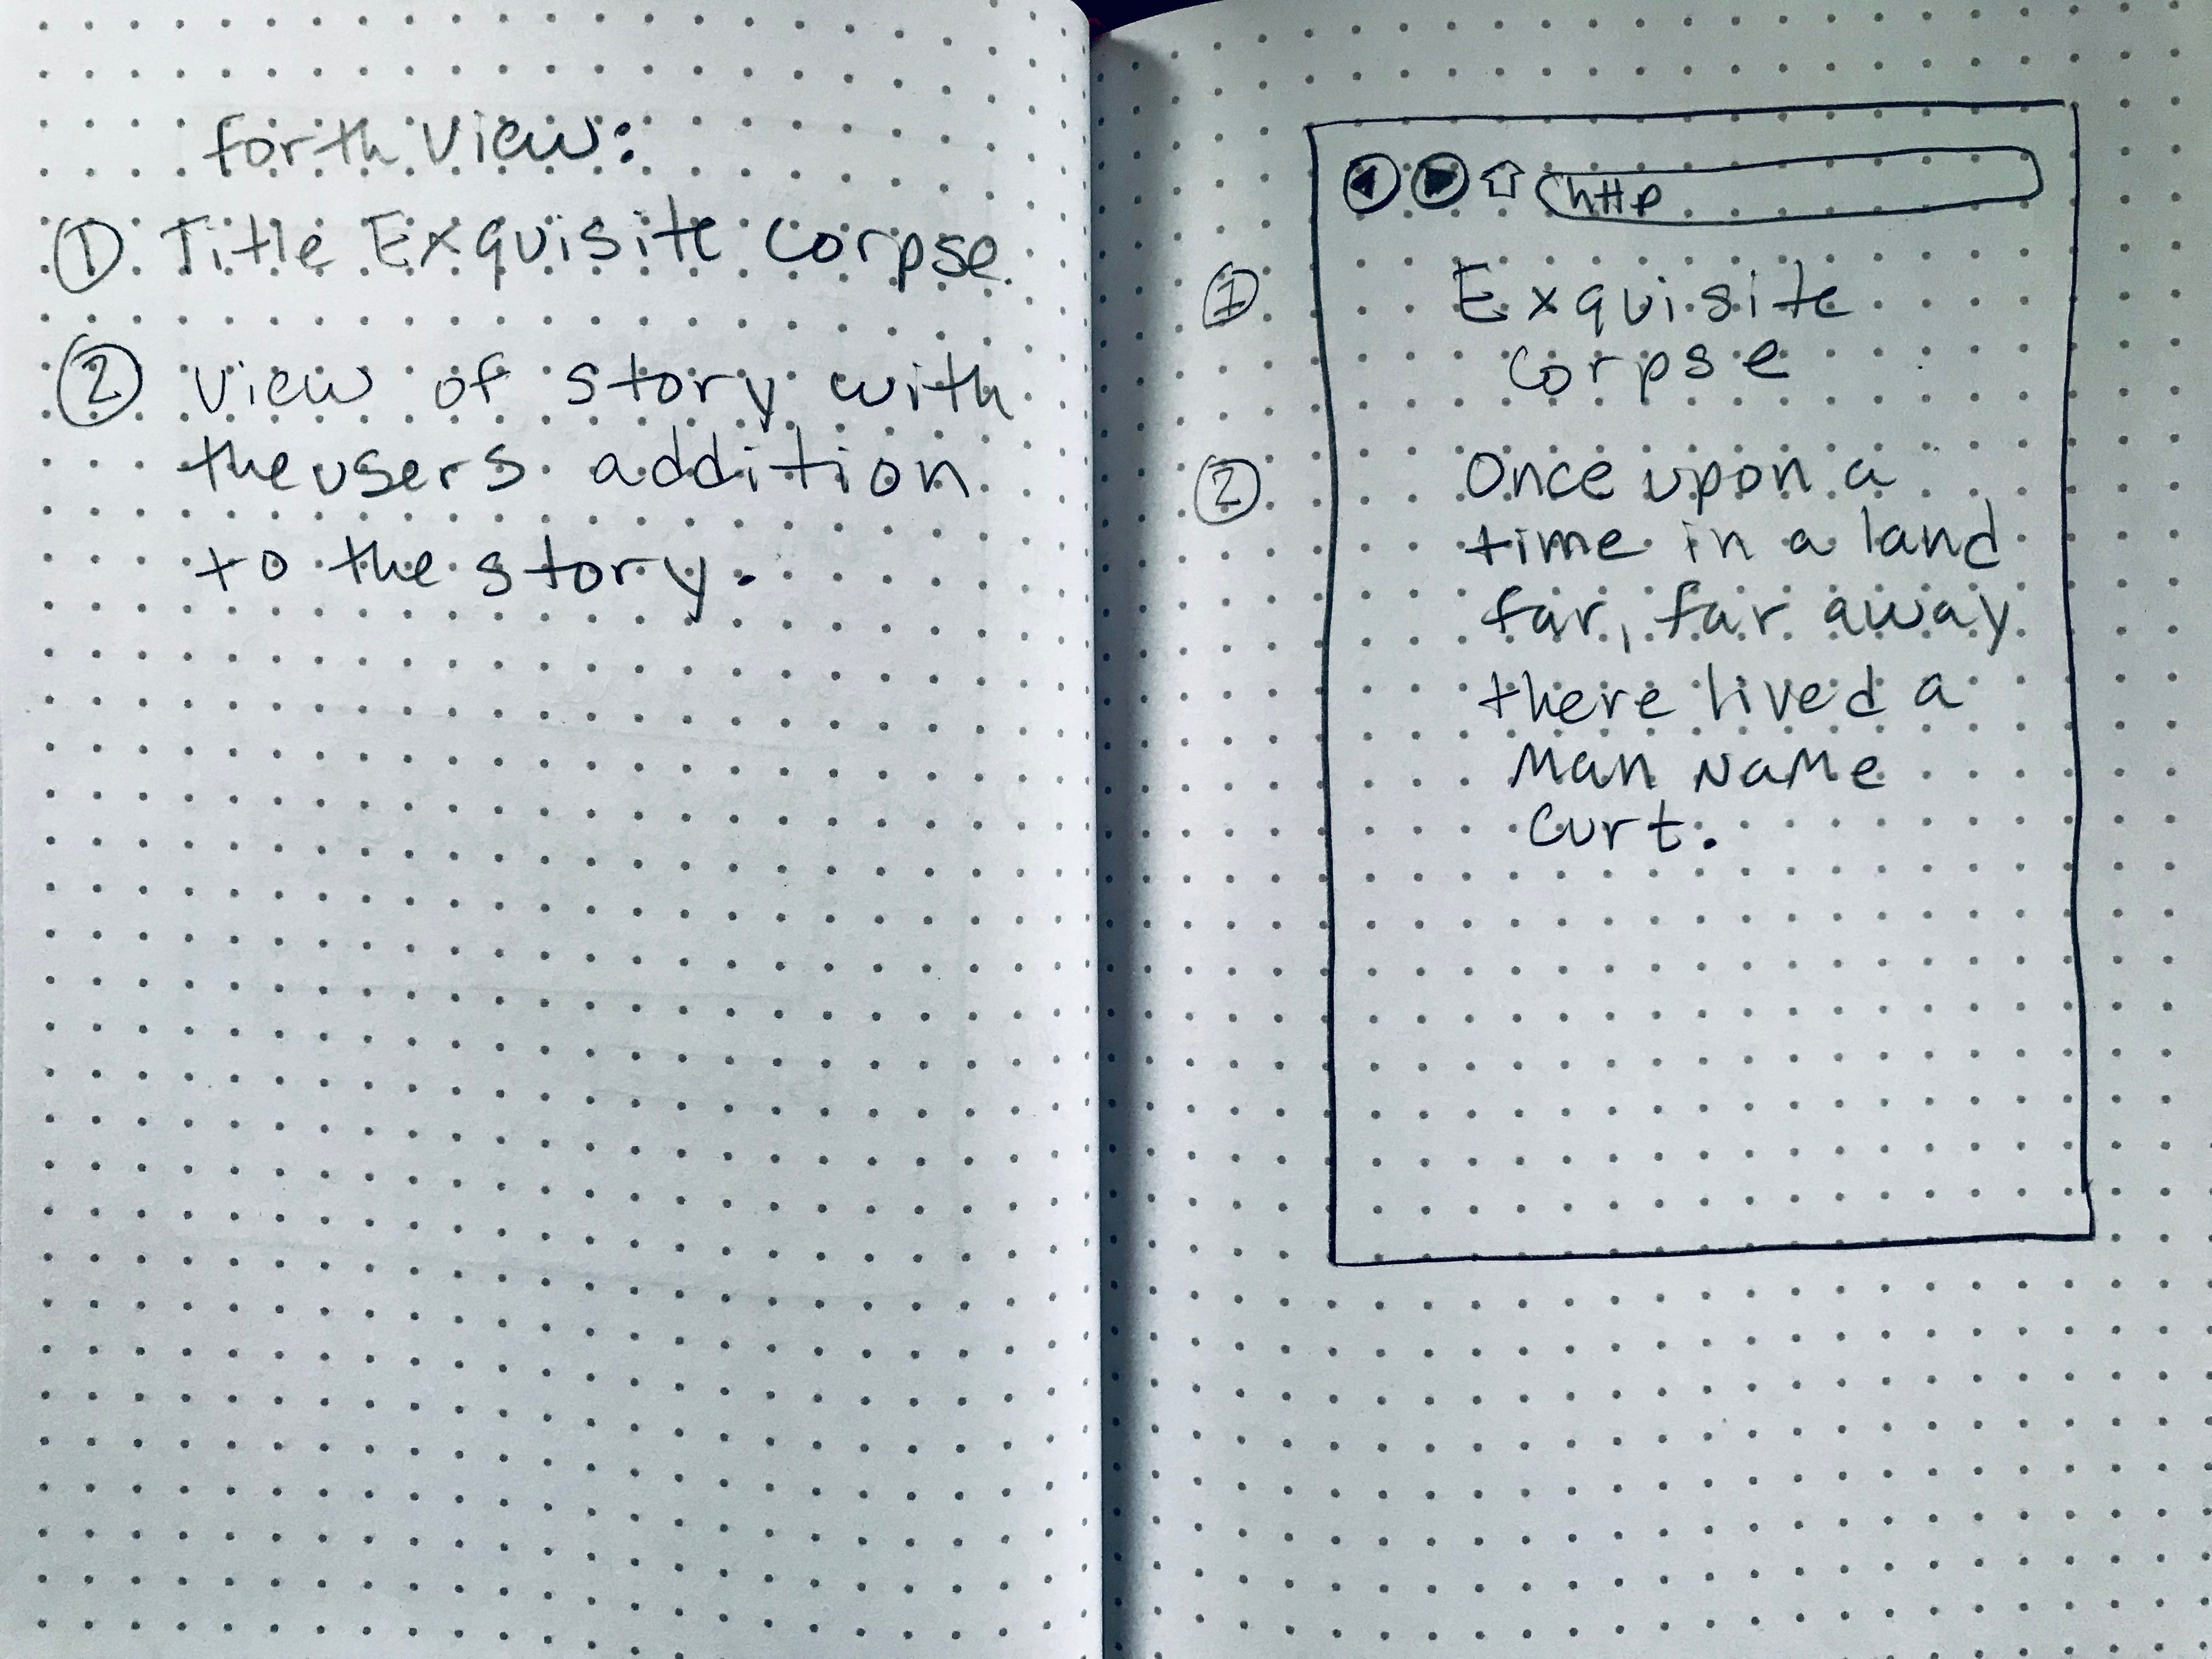 forth View:
① Title Exquisite Corpse
② view of story with
the users addition
to the story.
http
① Exquisite
Corpse
② Once upon a
time in a land
far, far away
there lived a
Man Name
Curt.